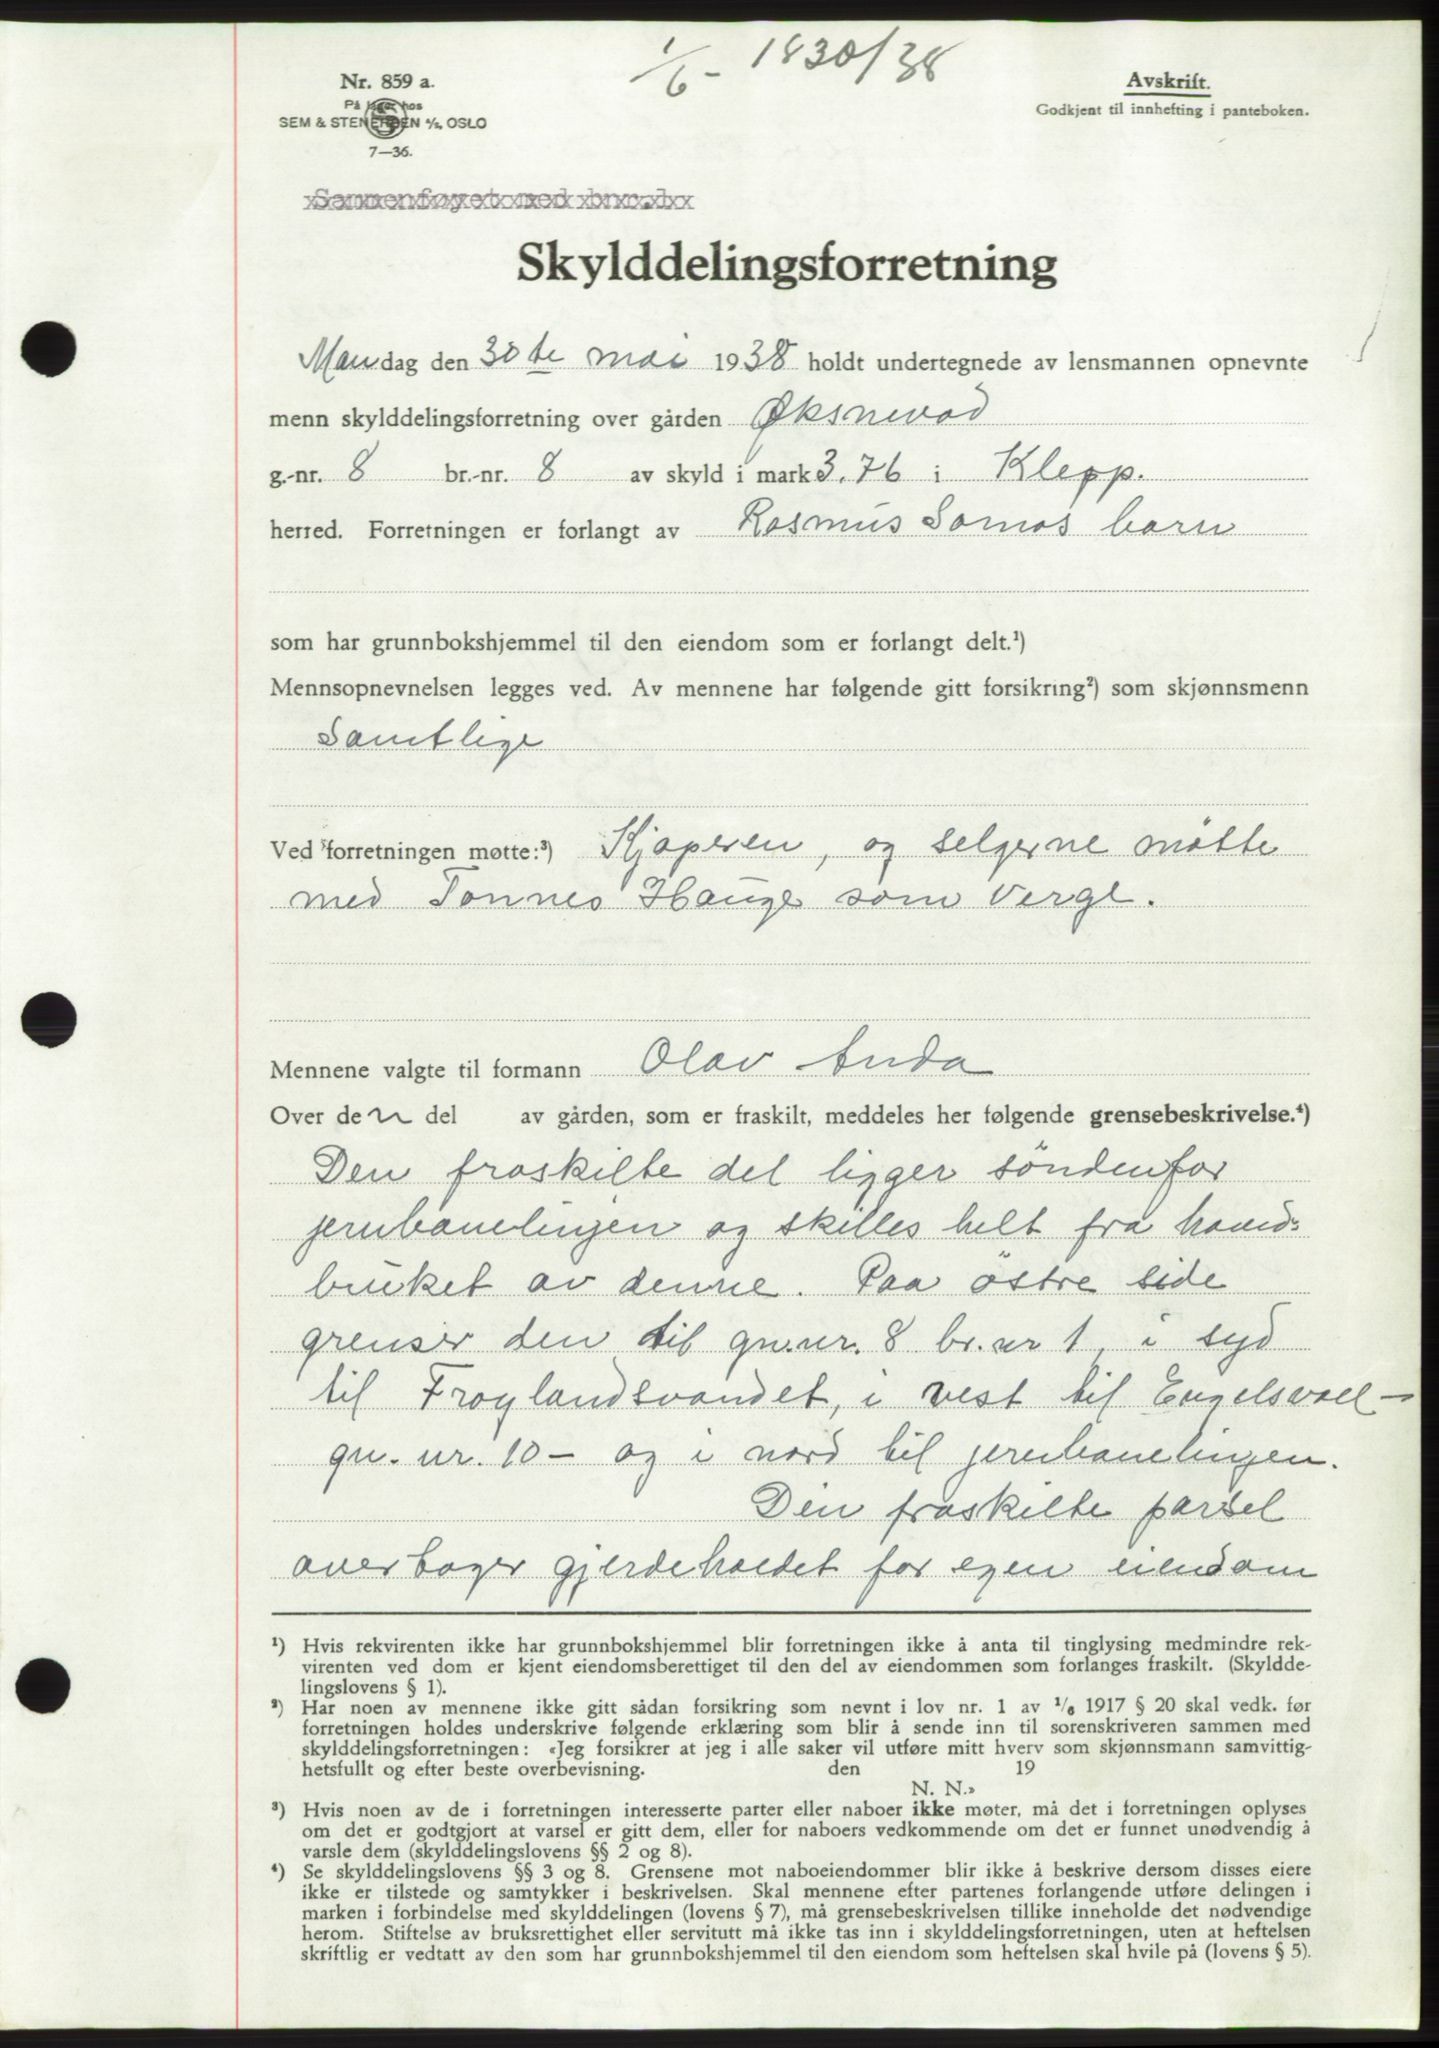 1/6 - 1830/38
Nr. 859 a.
På lager hos
SEM & STENERSEN A/S, OSLO
7—36.
Avskrift.
Godkjent til innhefting i panteboken.
Sammenføyet med bnr. 1
Skylddelingsforretning
Mandag den 30te mai 1938 holdt undertegnede av lensmannen opnevnte
menn skylddelingsforretning over gården Øksnevad
g.-nr. 8 br.-nr. 8 av skyld i mark 3.76 i Klepp.
herred. Forretningen er forlangt av Rasmus Somas barn
som har grunnbokshjemmel til den eiendom som er forlangt delt.¹)
Mennsopnevnelsen legges ved. Av mennene har følgende gitt forsikring²) som skjønnsmenn
Samtlige
Ved forretningen møtte:³) Kjøperen, og selgerne møtte
med Tønnes Hauge som Verge.
Mennene valgte til formann Olav Anda
Over den del av gården, som er fraskilt, meddeles her følgende grensebeskrivelse.⁴)
Den fraskilte del ligger søndenfor
jernbanelinjen og skilles helt fra hoved-
bruket av denne. Paa østre side
grenser den til gn.nr. 8 br.nr 1, i syd
til Frøylandsvandet, i vest til Engelsvoll -
gn. nr. 10 - og i nord til jernbanelinjen.
Den fraskilte parsel
overtager gjerdeholdet for egen eiendom
¹) Hvis rekvirenten ikke har grunnbokshjemmel blir forretningen ikke å anta til tinglysing medmindre rek-
virenten ved dom er kjent eiendomsberettiget til den del av eiendommen som forlanges fraskilt. (Skyldde-
lingslovens § 1).
²) Har noen av mennene ikke gitt sådan forsikring som nevnt i lov nr. 1 av 1/6 1917 § 20 skal vedk. før
forretningen holdes underskrive følgende erklæring som blir å sende inn til sorenskriveren sammen med
skylddelingsforretningen: «Jeg forsikrer at jeg i alle saker vil utføre mitt hverv som skjønnsmann samvittig-
hetsfullt og efter beste overbevisning. den 19
N. N.»
³) Hvis noen av de i forretningen interesserte parter eller naboer ikke møter, må det i forretningen oplyses
om det er godtgjort at varsel er gitt dem, eller for naboers vedkommende om det er funnet unødvendig å
varsle dem (skylddelingslovens §§ 2 og 8).
⁴) Se skylddelingslovens §§ 3 og 8. Grensene mot naboeiendommer blir ikke å beskrive dersom disses eiere
ikke er tilstede og samtykker i beskrivelsen. Skal mennene efter partenes forlangende utføre delingen i
marken i forbindelse med skylddelingen (lovens § 7), må grensebeskrivelsen tillike inneholde det nødvendige
herom. Stiftelse av bruksrettighet eller servitutt må ikke tas inn i skylddelingsforretningen, uten at heftelsen
skriftlig er vedtatt av den som har grunnbokshjemmel til den eiendom som heftelsen skal hvile på (lovens § 5).